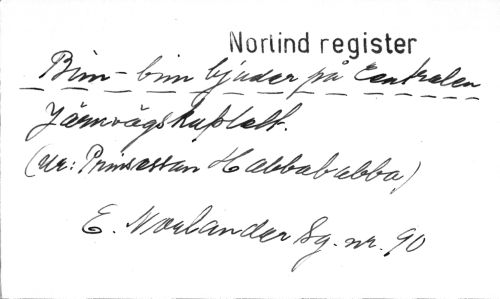 Norlind register
Bim-bim bjuder på Centralen
Järnvägskuplett.
(ur: Prinsessan Habbababba)
E. Norlander Sg. nr. 90